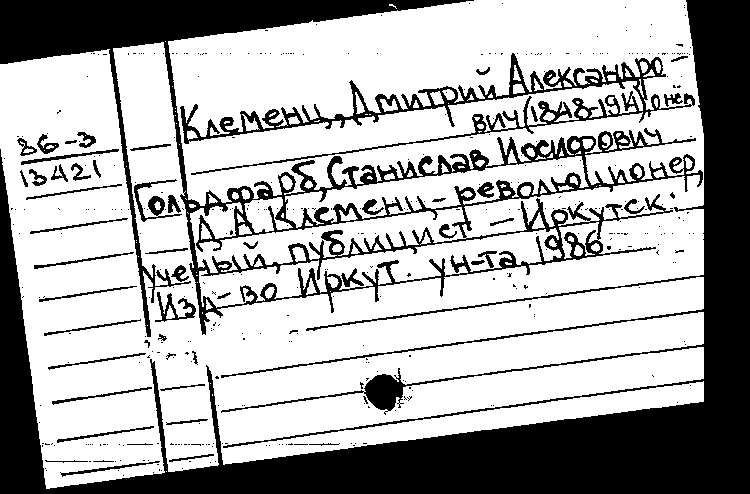 Клеменц, Дмитрий Александро-
вич (1848-1914), о нём.
86-3
13421
Гольдфарб, Станислав Иосифович
Д.А. Клеменц - революционер,
ученый, публицист - Иркутск:
Изд-во Иркут. ун-та, 1986.